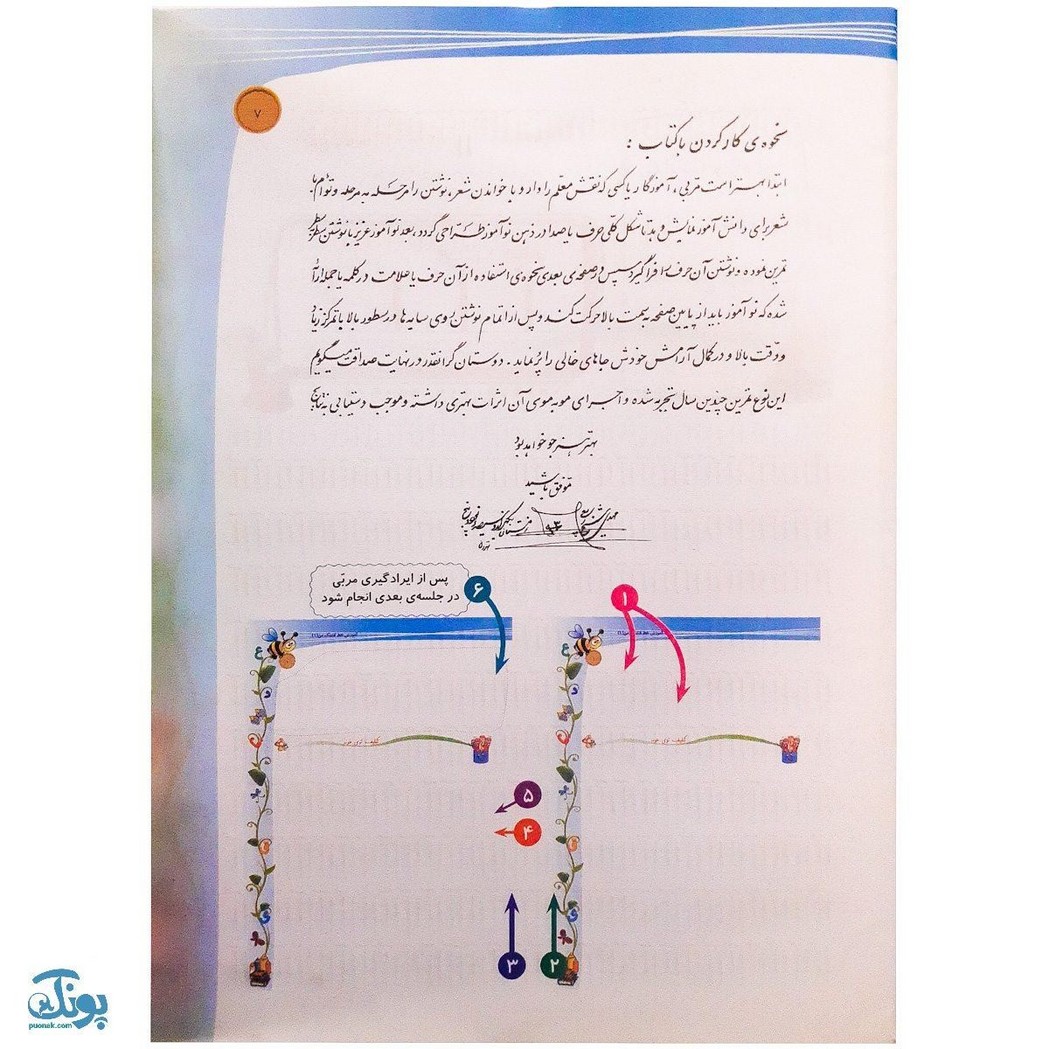 ۷
نحوه ی کار کردن با کتاب :
ابتدا بهتر است مربی ، آموزگار یا کسی که نقش معلم را دارد با خواندن شعر، نوشتن را مرحله به مرحله و توأم با
شعر برای دانش آموز نمایش دهد تا شکل کلی حرف یا صدا در ذهن نوآموز طراحی گردد ، بعد نوآموز عزیز با نوشتن سطر سطر
تمرین نموده و نوشتن آن حرف را فرا گیرد سپس در صفحه ی بعدی نحوه ی استفاده از آن حرف یا علامت در کلمه یا جمله ارائه
شده که نوآموز باید از پایین صفحه به سمت بالا حرکت کند و پس از اتمام نوشتن روی سایه ها در سطور بالا با تمرکز
و دقت بالا و در کمال آرامش خودش جاهای خالی را پُر نماید . دوستان گرانقدر در نهایت صداقت میگویم
این نوع تمرین چندین سال تجربه شده و اجرای مو به موی آن اثرات بهتری داشته و موجب دستیابی به نتایج
بهتر هنرجو خواهد بود
موفق باشید
پس از ایرادگیری مربّی
در جلسه‌ی بعدی انجام شود
۶
۱
ع
د
و
ع
د
و
۵
۴
۳
۲
پونک
puonak.com